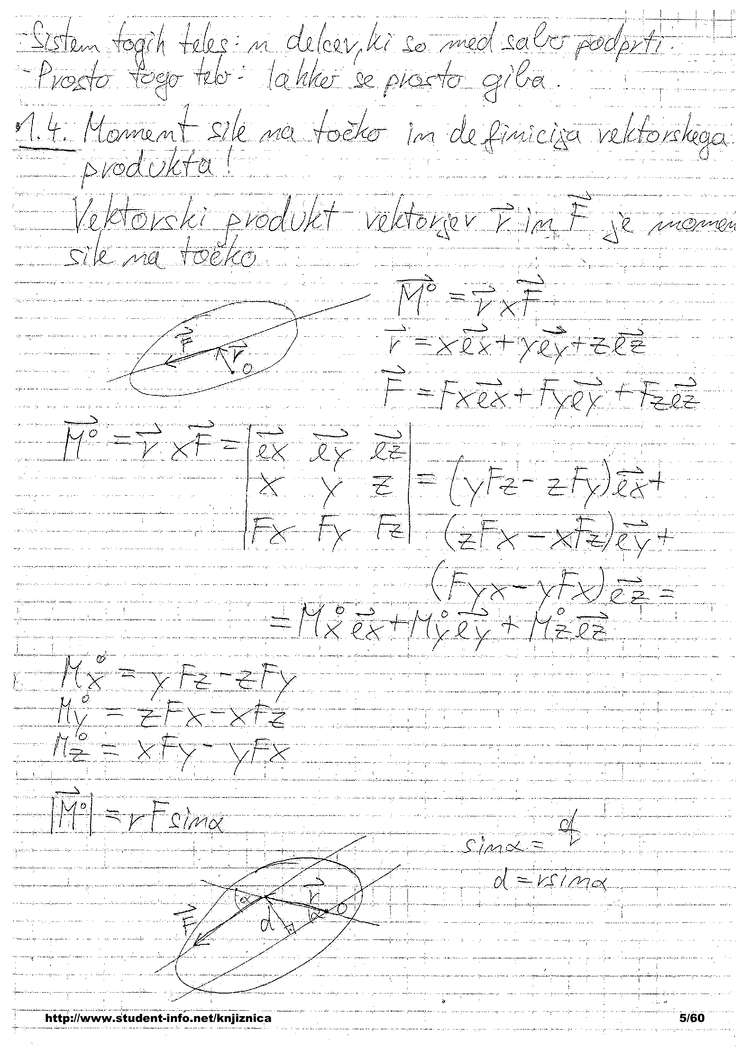 -Sistem togih teles: n delcev, ki so med sabo podprti.
-Prosto togo telo: lahko se prosto giba.
1.4. Moment sile na točko in definicija vektorskega
produkta!
Vektorski produkt vektorjev r⃗ in F⃗ je momen
sile na točko
M⃗° = r⃗ x F⃗
r⃗ = xe⃗x + ye⃗y + ze⃗z
F⃗ = Fxe⃗x + Fye⃗y + Fze⃗z
F⃗ r⃗ O
M⃗° = r⃗ x F⃗ = | e⃗x e⃗y e⃗z | = (yFz - zFy)e⃗x +
| x y z |
| Fx Fy Fz | (zFx - xFz)e⃗y +
(Fyx - yFx)e⃗z =
= Mx° e⃗x + My° e⃗y + Mz° e⃗z
Mx° = yFz - zFy
My° = zFx - xFz
Mz° = xFy - yFx
|M⃗°| = rFsinα
sinα = d/r
d = rsinα
F⃗ α d r⃗ α O
http://www.student-info.net/knjiznica
5/60